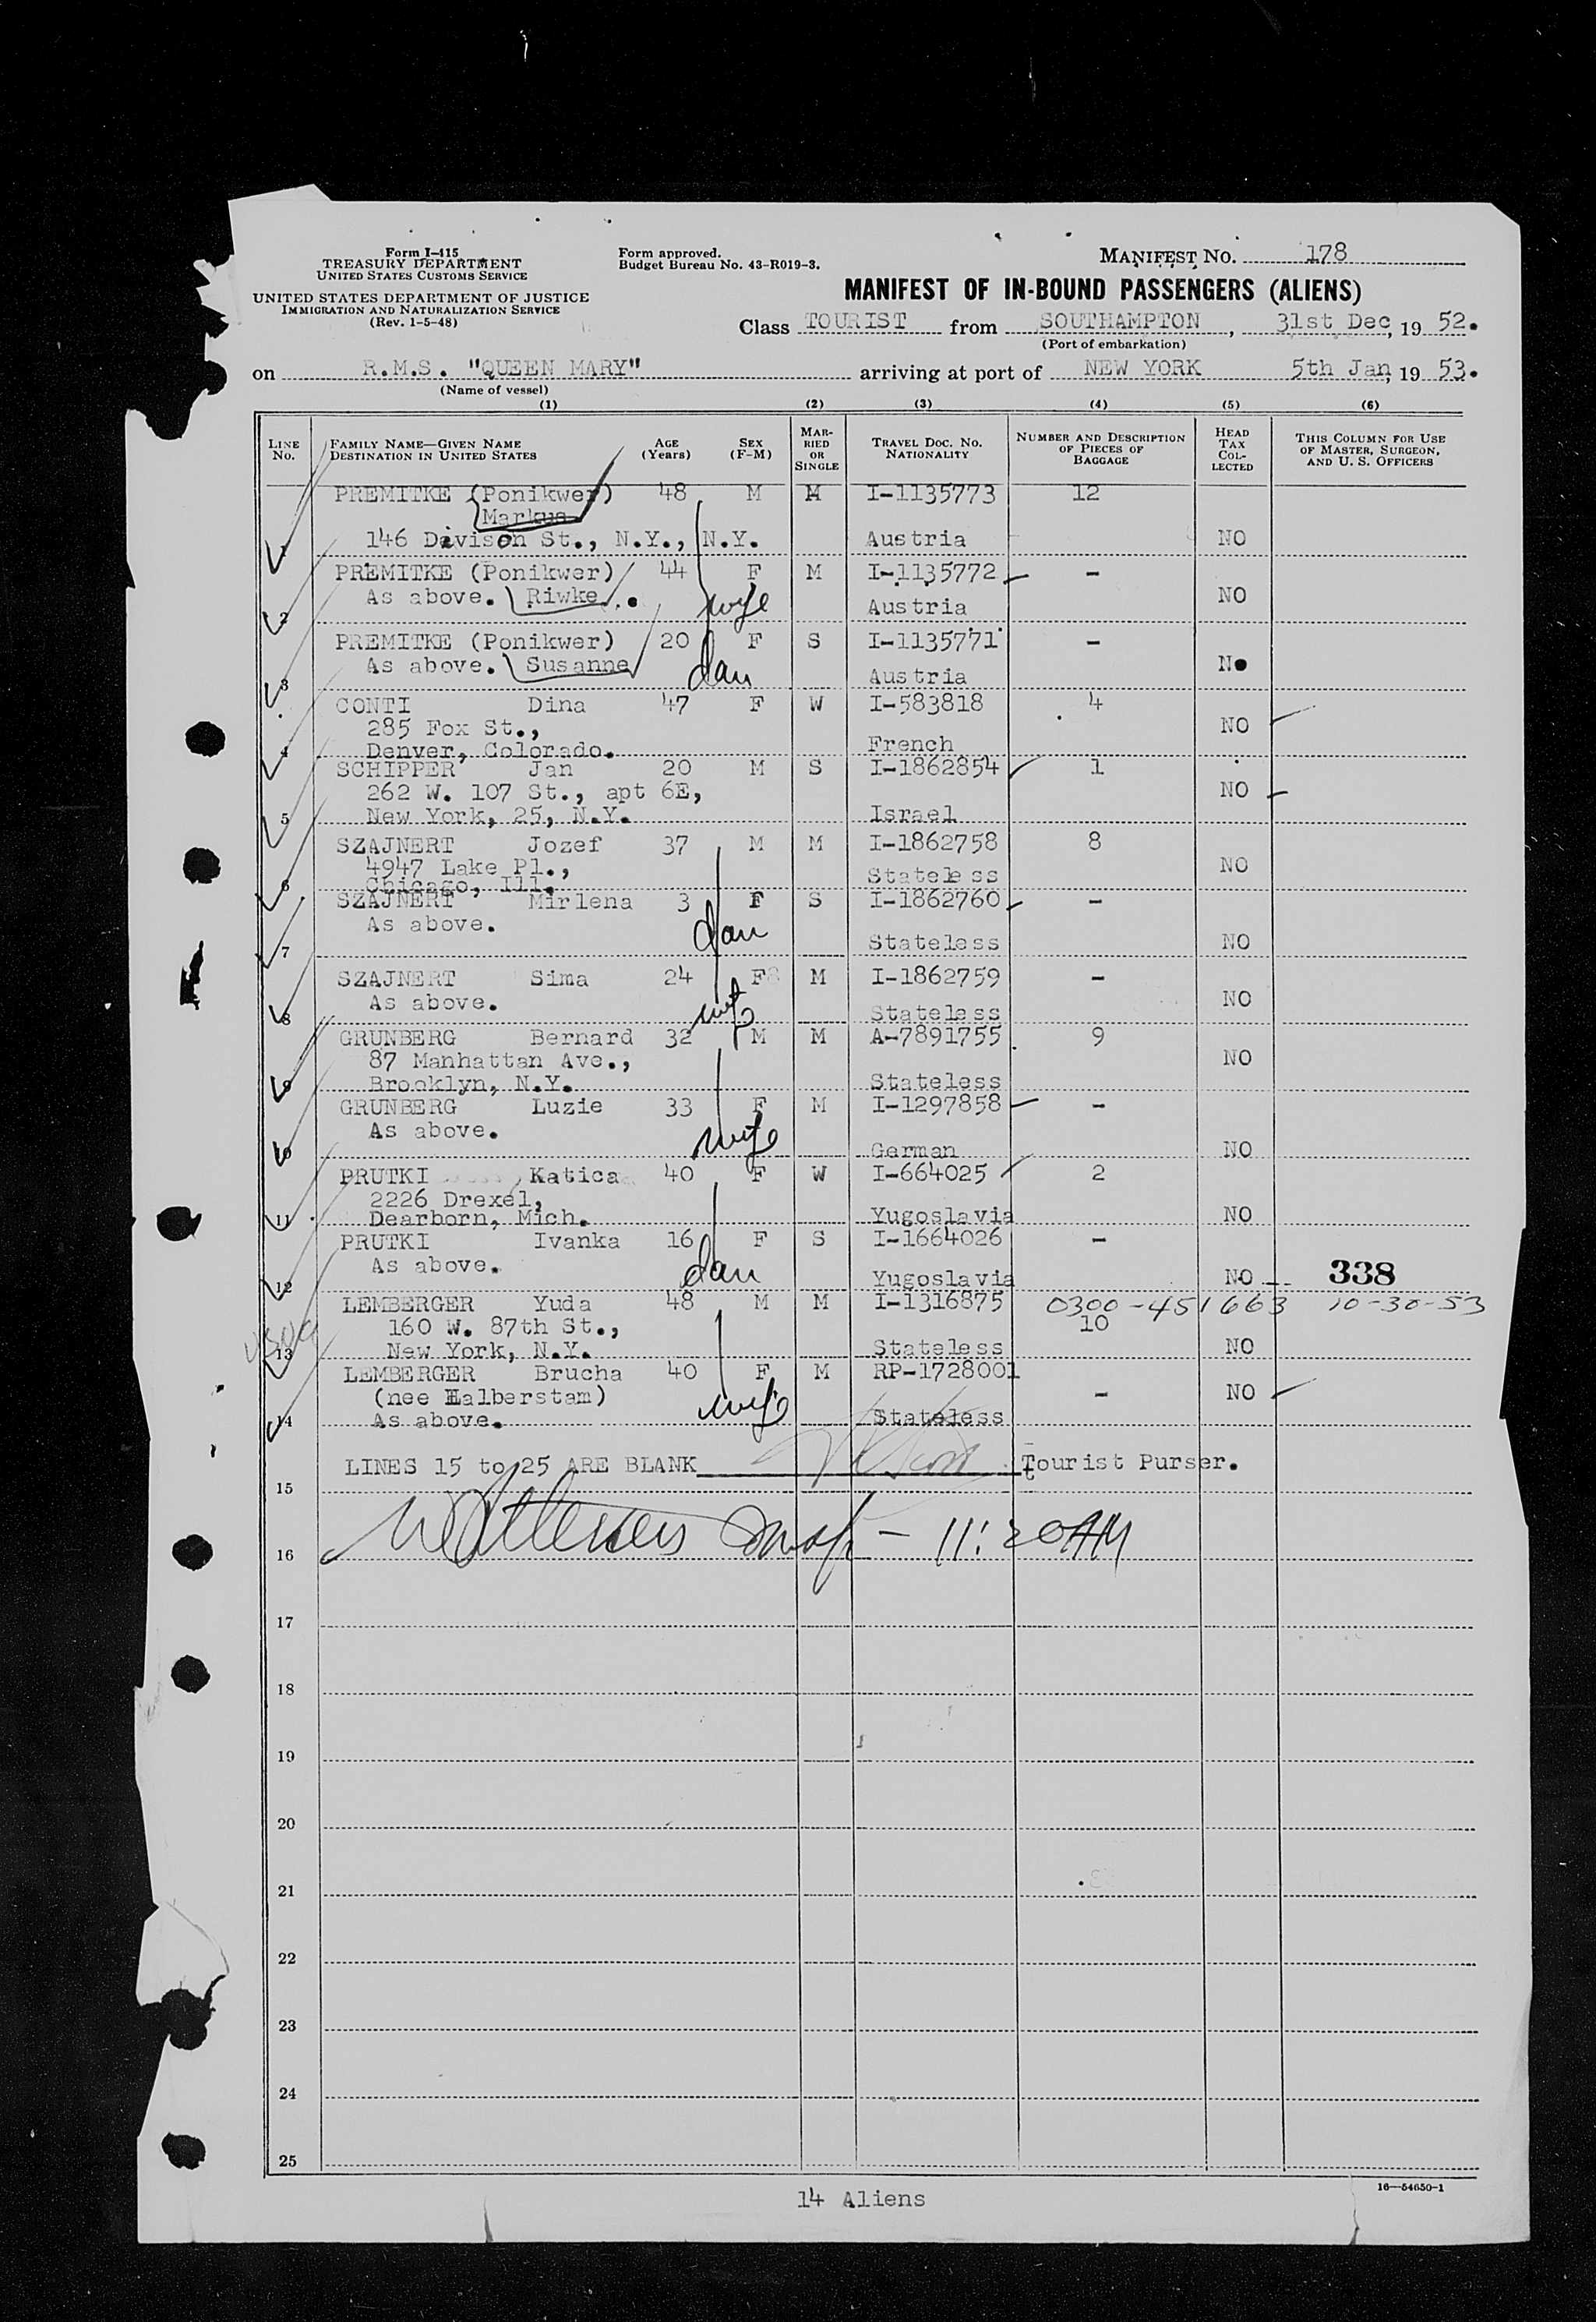 Form I-415
TREASURY DEPARTMENT
UNITED STATES CUSTOMS SERVICE
UNITED STATES DEPARTMENT OF JUSTICE
IMMIGRATION AND NATURALIZATION SERVICE
(Rev. 1-5-48)
Form approved.
Budget Bureau No. 43-R019-3.
MANIFEST NO. 178
MANIFEST OF IN-BOUND PASSENGERS (ALIENS)
Class TOURIST from SOUTHAMPTON, 31st Dec, 19 52.
(Port of embarkation)
on R.M.S. "QUEEN MARY" arriving at port of NEW YORK 5th Jan, 19 53.
(Name of vessel)
(1) (2) (3) (4) (5) (6)
LINE NO. FAMILY NAME—GIVEN NAME DESTINATION IN UNITED STATES AGE (Years) SEX (F-M) MARRIED OR SINGLE TRAVEL DOC. NO. NATIONALITY NUMBER AND DESCRIPTION OF PIECES OF BAGGAGE HEAD TAX COLLECTED THIS COLUMN FOR USE OF MASTER, SURGEON, AND U. S. OFFICERS
PREMITKE (Ponikwer) 48 M M I-1135773 12
Markus
1 146 Davison St., N.Y., N.Y. Austria NO
PREMITKE (Ponikwer) 44 F M I-1135772 -
As above. Riwke. wife NO
2 Austria
PREMITKE (Ponikwer) 20 F S I-1135771 -
As above. Susanne dau NO
3 Austria
CONTI Dina 47 F W I-583818 4
285 Fox St., NO
4 Denver, Colorado. French
SCHIPPER Jan 20 M S I-1862854 1
262 W. 107 St., apt 6E, NO
5 New York, 25, N.Y. Israel
SZAJNERT Jozef 37 M M I-1862758 8
4947 Lake Pl., NO
6 Chicago, Ill. Stateless
SZAJNERT Mirlena 3 F S I-1862760 -
As above. dau
7 Stateless NO
SZAJNERT Sima 24 F M I-1862759 -
As above. NO
8 wife Stateless
GRUNBERG Bernard 32 M M A-7891755 9
87 Manhattan Ave., NO
9 Brooklyn, N.Y. Stateless
GRUNBERG Luzie 33 F M I-1297858 -
As above. wife
10 German NO
PRUTKI Katica 40 F W I-664025 2
2226 Drexel,
11 Dearborn, Mich. Yugoslavia NO
PRUTKI Ivanka 16 F S I-1664026 -
As above. dau
12 Yugoslavia NO 338
LEMBERGER Yuda 48 M M I-1316875 0300-451663 10-30-53
160 W. 87th St., 10
13 New York, N.Y. Stateless NO
LEMBERGER Brucha 40 F M RP-1728001
(nee Halberstam) wife - NO
14 As above. Stateless
LINES 15 to 25 ARE BLANK Tourist Purser.
15
16 11:20AM
17
18
19
20
21
22
23
24
25
14 Aliens
16—54650-1